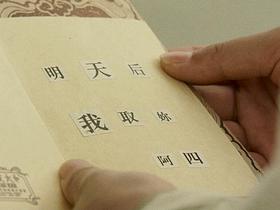 明天后
我取你
阿四